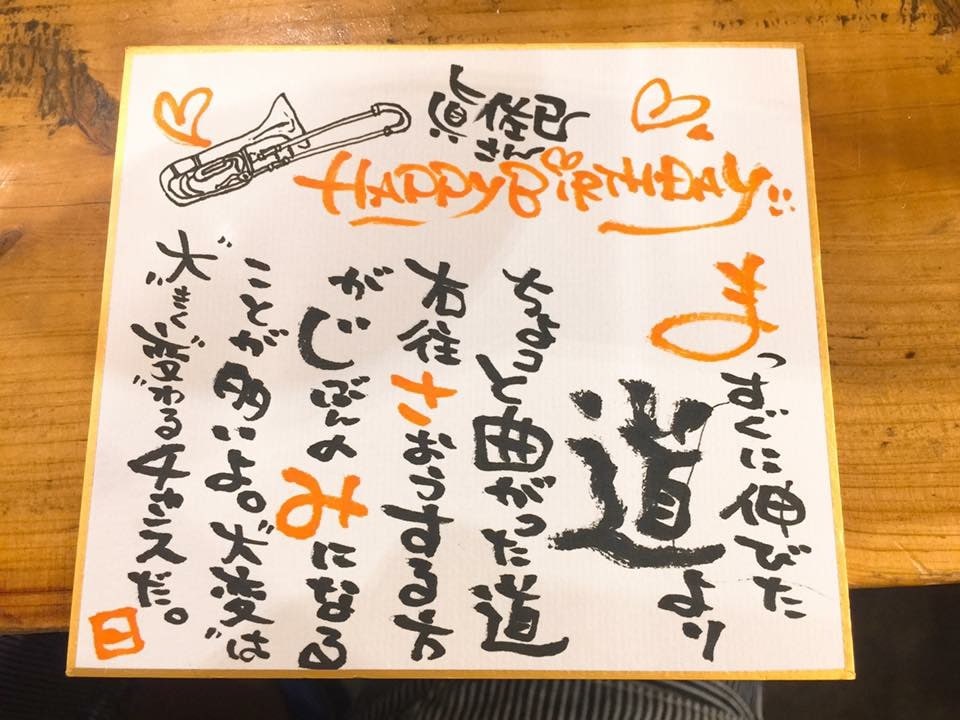 眞佐巳
さん
HAPPY BIRTHDAY
まっすぐに伸びた
道より
ちょっと曲がった道
右往さおうする方
がじぶんのみになる
ことが多いよ。大変は
大きく変わるチャンスだ。